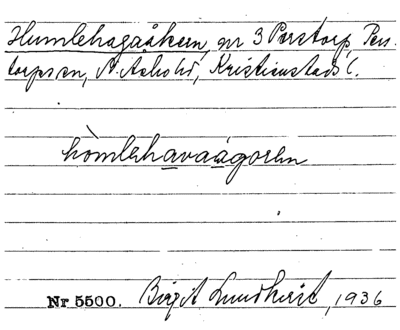 Humlehagaåkern, nr 3 Perstorp, Pers-
torps sn, N. Åsbo hd, Kristianstads l.
hòmlehavaágoren
Nr 5500. Birgit Lundkvist, 1936